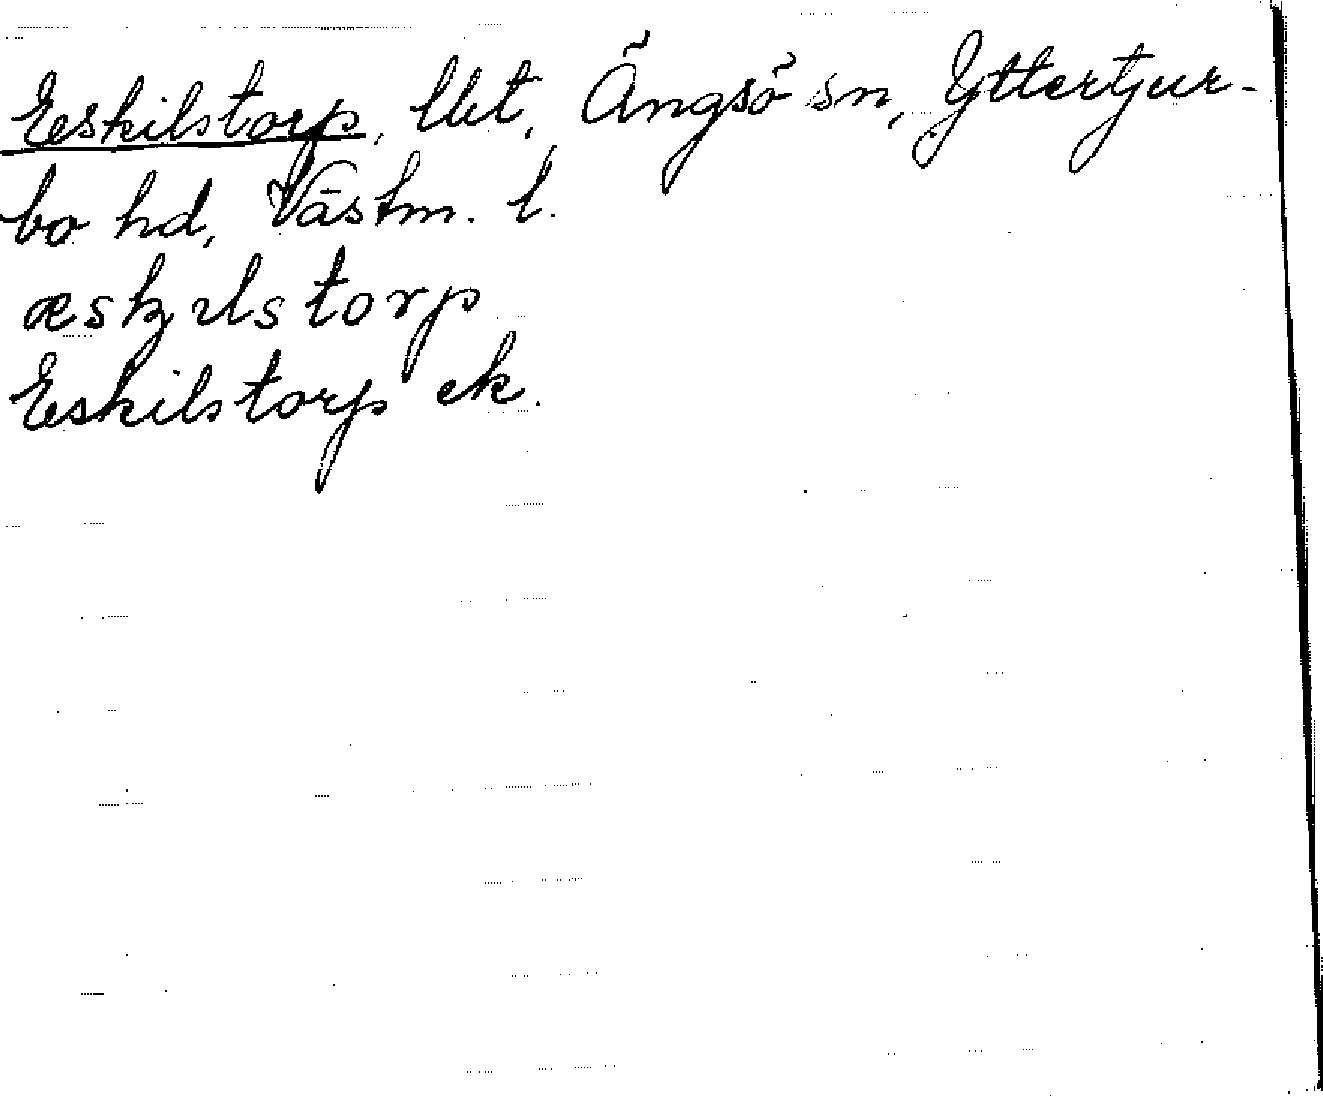 Eskilstorp, lht, Ängsö sn, Yttertjur-
bo hd, Västm. l.
æskɩlstorp
Eskilstorp ek.